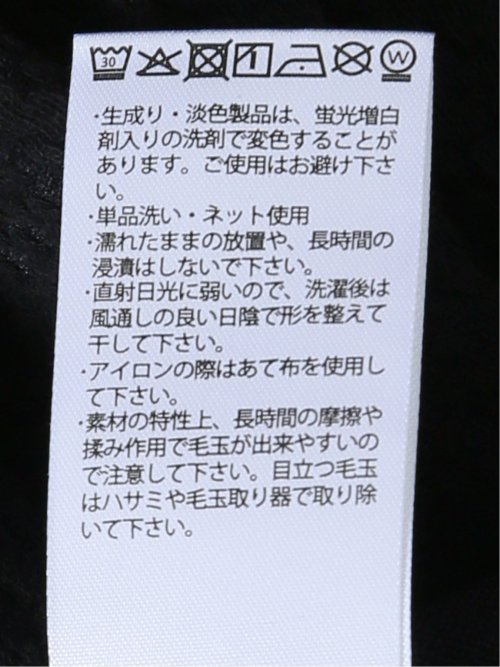 30 W
・生成り・淡色製品は、蛍光増白
剤入りの洗剤で変色することが
あります。ご使用はお避け下さ
い。
・単品洗い・ネット使用
・濡れたままの放置や、長時間の
浸漬はしないで下さい。
・直射日光に弱いので、洗濯後は
風通しの良い日陰で形を整えて
干して下さい。
・アイロンの際はあて布を使用し
て下さい。
・素材の特性上、長時間の摩擦や
揉み作用で毛玉が出来やすいの
で注意して下さい。目立つ毛玉
はハサミや毛玉取り器で取り除
いて下さい。